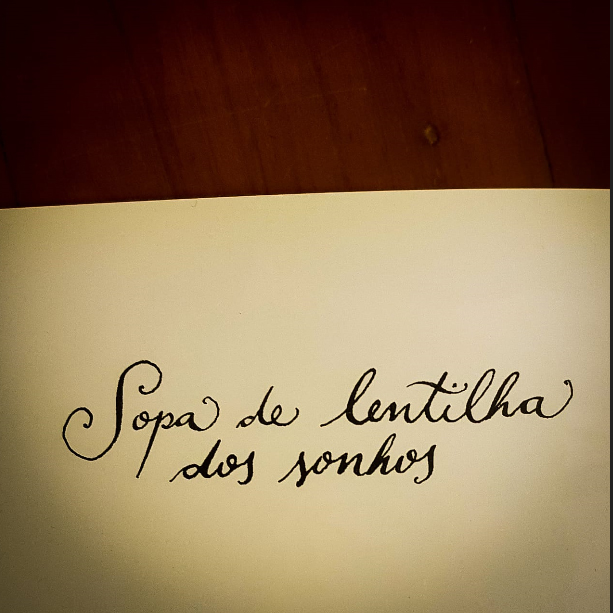 Sopa de lentilha
dos sonhos